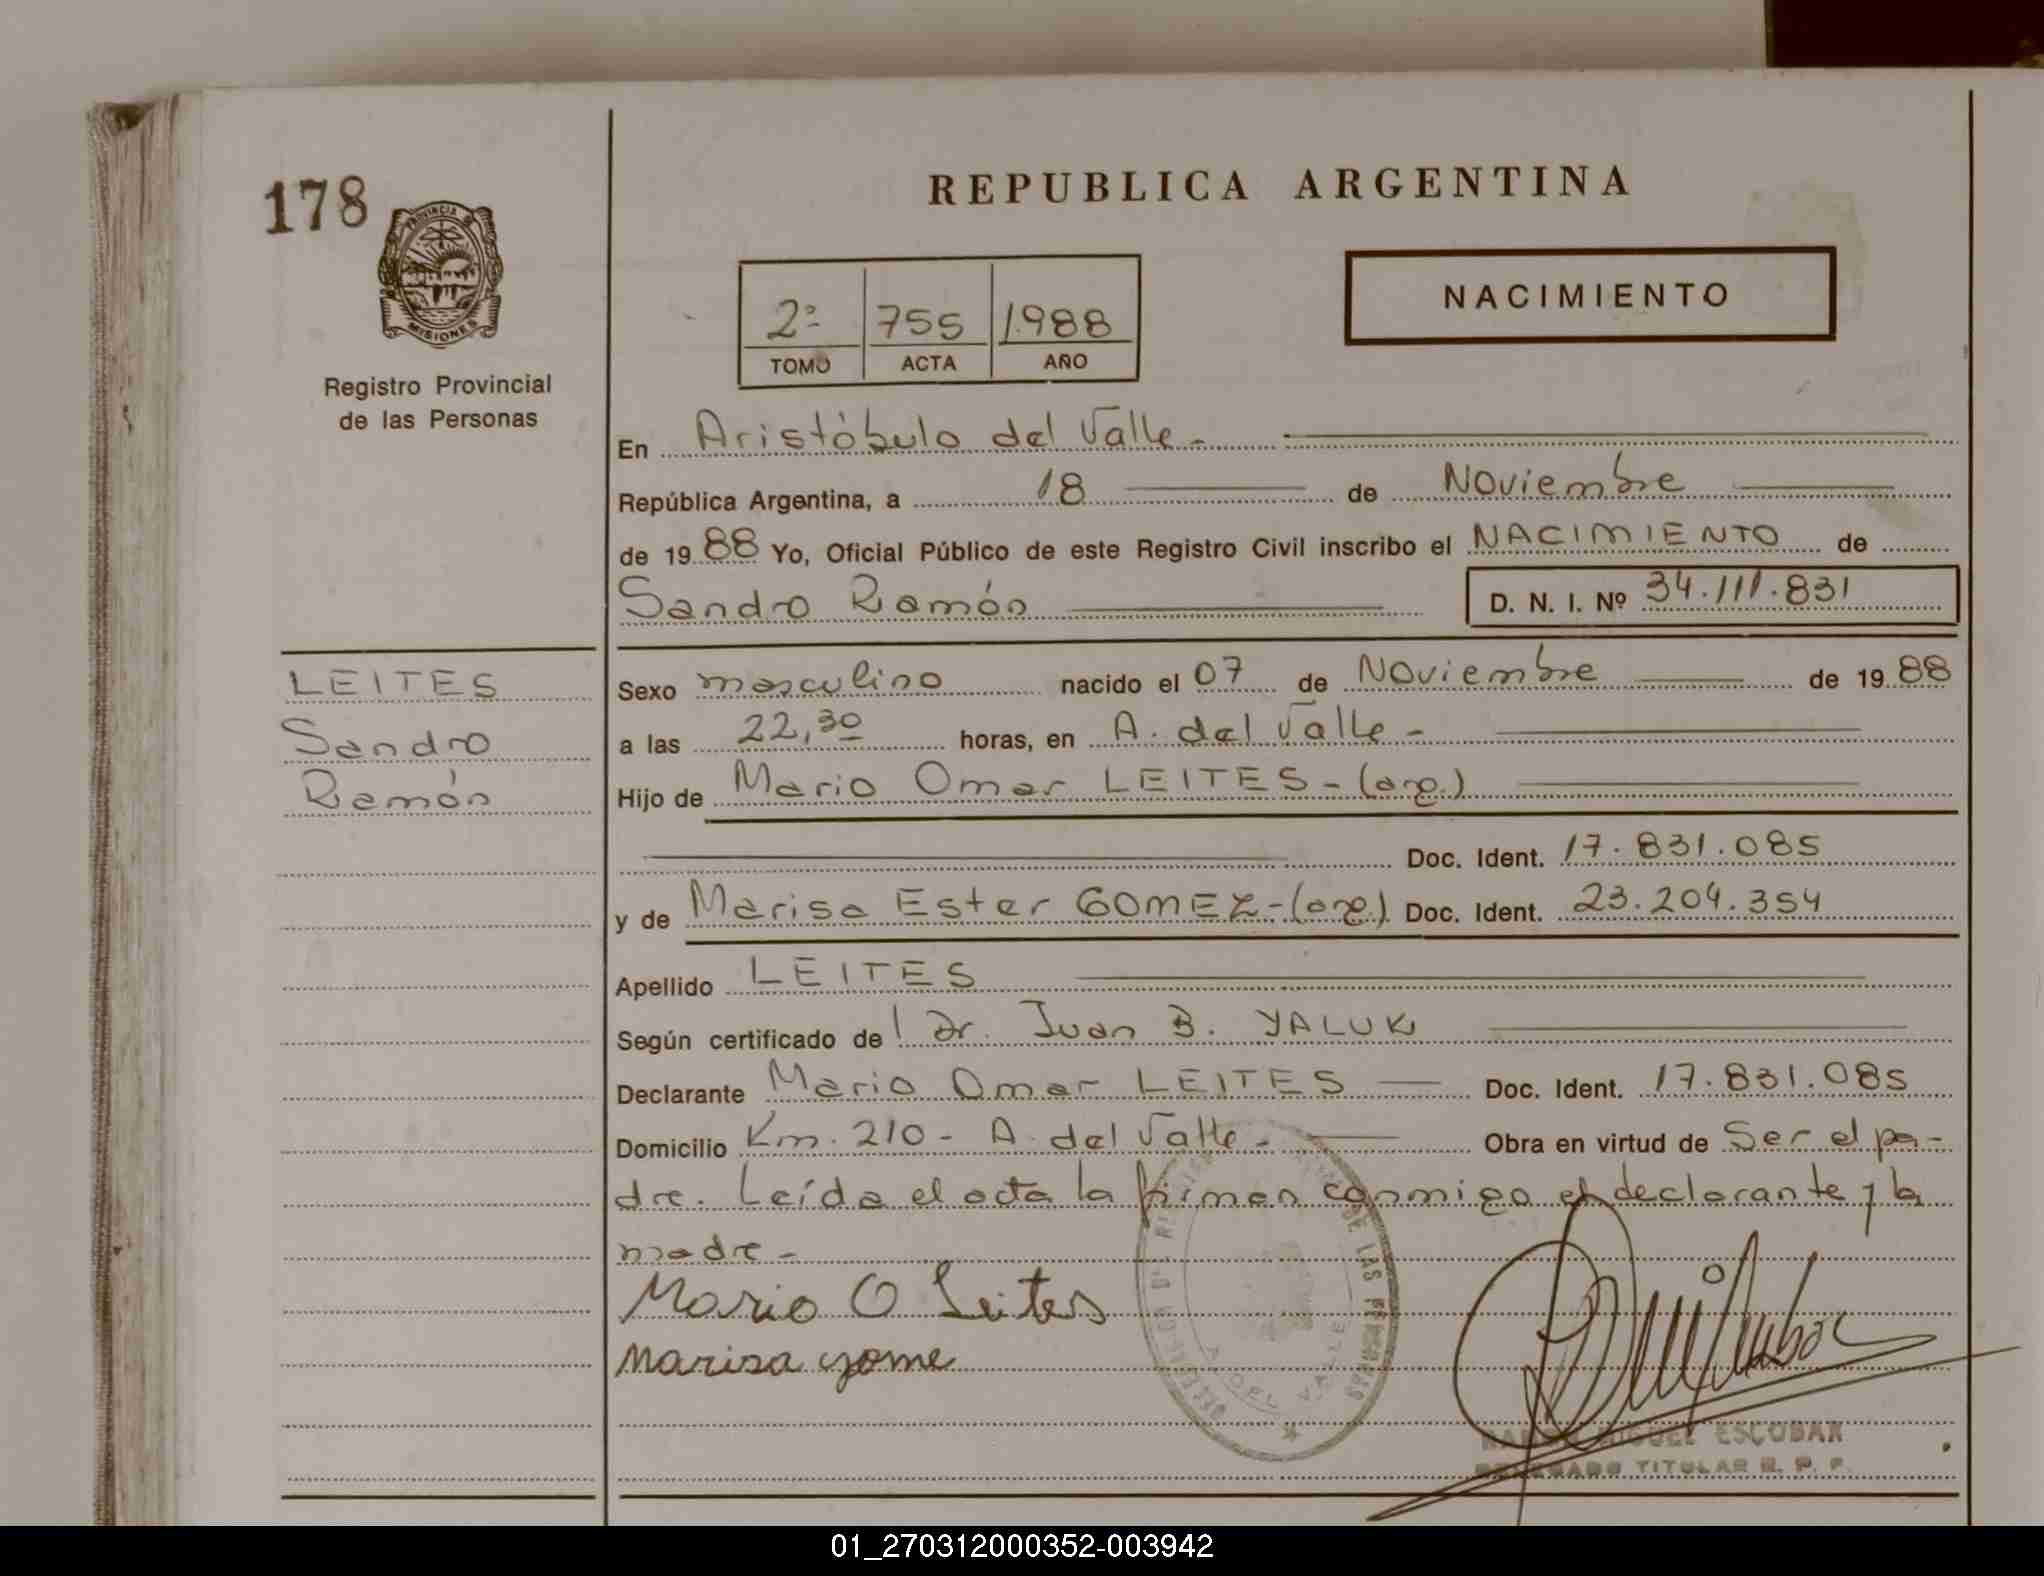 178
REPUBLICA ARGENTINA
PROVINCIA DE
MISIONES
Registro Provincial
de las Personas
2º 755 1988
TOMO ACTA AÑO
NACIMIENTO
En Aristóbulo del Valle.-
República Argentina, a 18 de Noviembre
de 1988 Yo, Oficial Público de este Registro Civil inscribo el NACIMIENTO de
Sandro Ramón D. N. I. Nº 34.111.831
LEITES
Sandro
Ramón
Sexo masculino nacido el 07 de Noviembre de 1988
a las 22,30 horas, en A. del Valle -
Hijo de Mario Omar LEITES - (arg.)
Doc. Ident. 17.831.085
y de Marisa Ester GOMEZ - (arg.) Doc. Ident. 23.204.354
Apellido LEITES
Según certificado del Dr. Juan B. YALUK
Declarante Mario Omar LEITES Doc. Ident. 17.831.085
Domicilio Km. 210 - A. del Valle - Obra en virtud de Ser el pa-
dre. Leída el acta la firman conmigo el declarante y la
madre -
Mario O Leites
Marisa gome
DE LAS PERSONAS
A. DEL VALLE
RAMON MIGUEL ESCOBAR
DELEGADO TITULAR R. P. P.
01_270312000352-003942